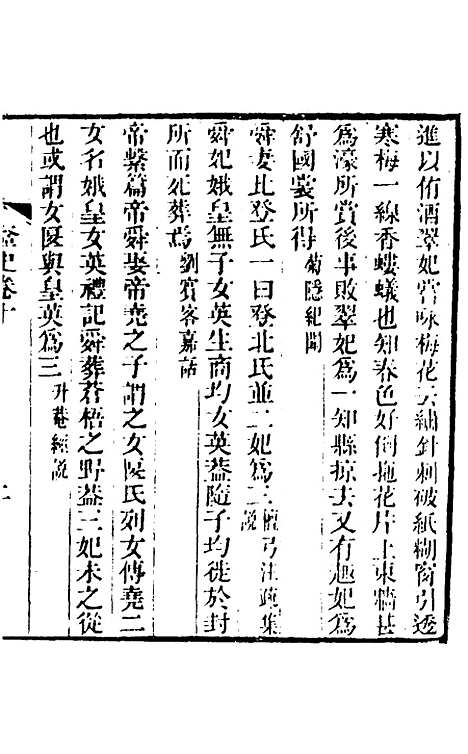 進以侑酒翠妃嘗咏梅花云繡針刺破紙糊窗引透
寒梅一線香螻蟻也知春色好倒拖花片上東牆甚
爲濠所賞後事敗翠妃爲一知縣掠去又有趣妃爲
舒國裳所得 菊隱紀聞
舜妻比登氏一曰登北氏並二妃爲三 檀弓注疏集說
舜妃娥皇無子女英生商均女英葢隨子均徙於封
所而死葬焉 劉賓客嘉話
帝繫篇帝舜娶帝堯之子謂之女匽氏列女傳堯二
女名娥皇女英禮記舜葬蒼梧之野葢三妃未之從
也或謂女匽與皇英爲三 升菴經說
奩史卷十
二